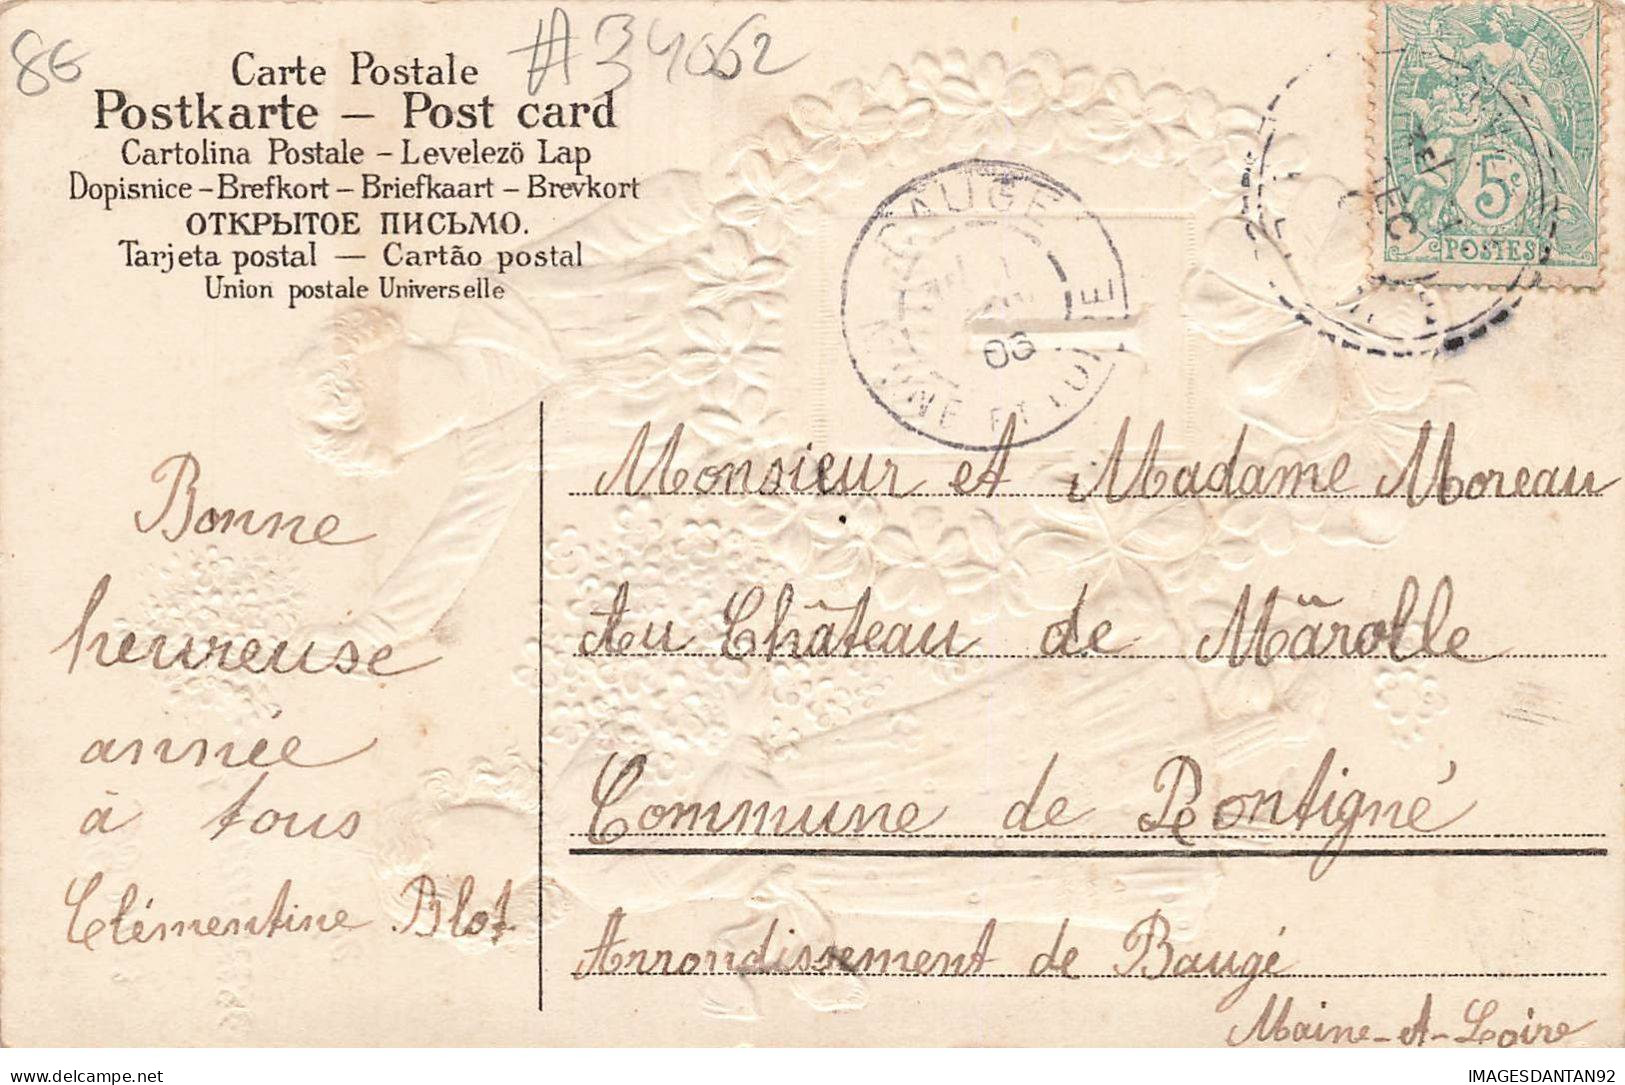 8G
#34062
Carte Postale
Postkarte – Post card
Cartolina Postale – Levelezö Lap
Dopisnice – Brefkort – Briefkaart – Brevkort
ОТКРЫТОЕ ПИСЬМО.
Tarjeta postal — Cartão postal
Union postale Universelle
5c
POSTES
BAUGE
06
MAINE ET LOIRE
Bonne
heureuse
année
à tous
Clémentine Blot
Monsieur et Madame Moreau
Au Château de Marolle
Commune de Pontigné
Arrondissement de Baugé
Maine-et-Loire
delcampe.net
IMAGESDANTAN92